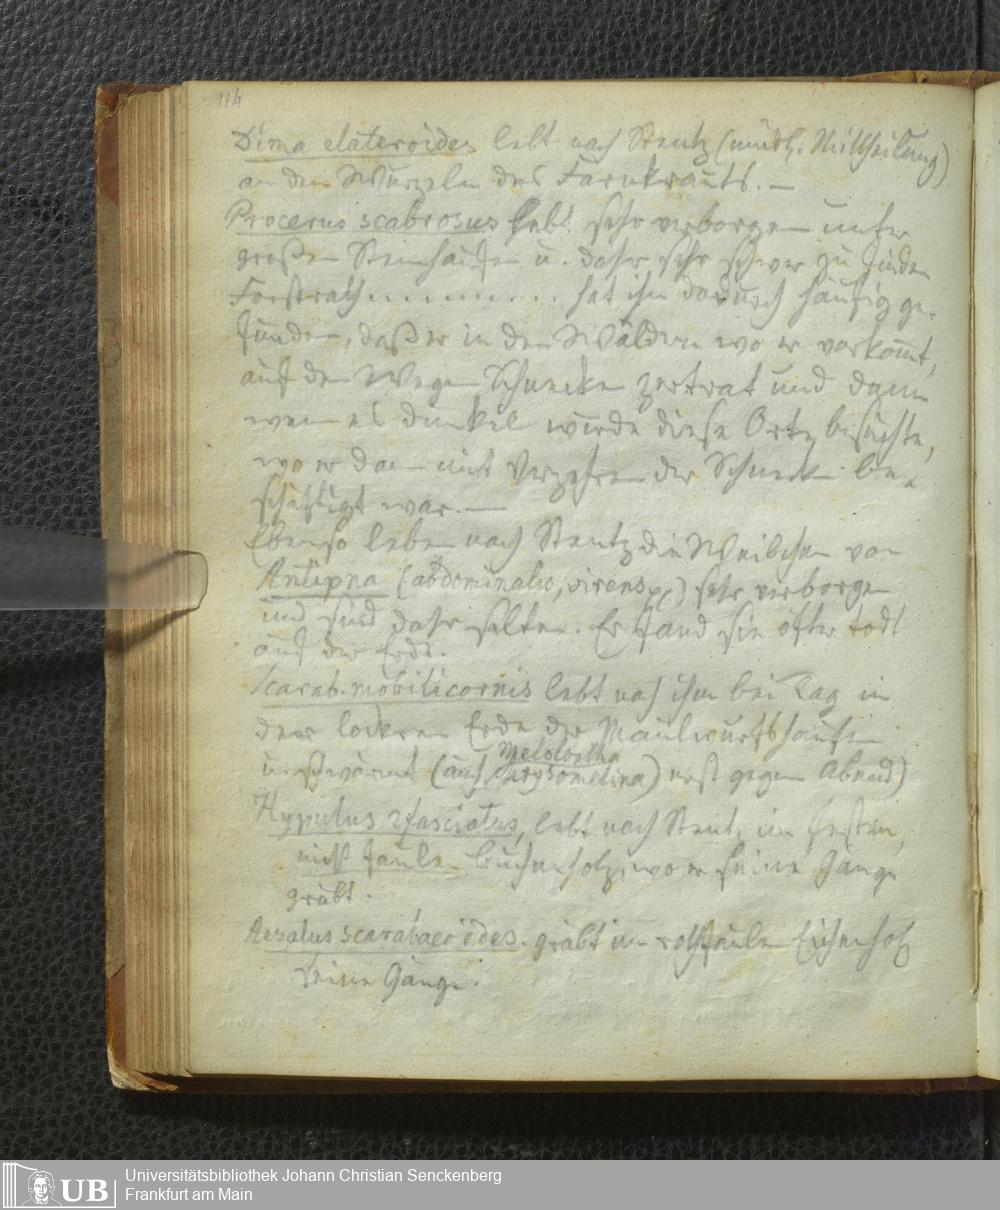 114
Dima elateroides lebt nach Stentz (mündl. Mittheilung)
an den Wurzeln des Farnkrauts. —
Procerus scabrosus lebt sehr verborgen unter
großen Steinhaufen u. daher sehr schwer zu finden
Forstrath . . . . . . . . . . hat ihn dadurch häufig ge-
funden, daß er in den Wäldern wo er vorkom̄t,
auf den Wegen Schnecken zertrat und dann
wenn es dunkel wurde diese Orte besuchte,
wo er dann mit Verzehren der Schnecken be-
schäftigt war. —
Ebenso leben nach Stentz die Weibchen von
Antipna (abdominalis, ) sehr verborgen
und sind daher selten. Er fand sie öfter todt
auf der Erde.
Scarab. mobilicornis lebt nach ihm bei Tag in
der lockeren Erde der Maulwurfshaufen
Melolontha
u. schwärmt (auch ) erst gegen Abend)
Hypulus 2fasciatus, lebt nach Stentz im festen,
nicht faulen Buchenholz, wo er seine Gänge
gräbt.
Aesalus scarabaeoides. gräbt im rothfaulen Eichenholz
seine Gänge.
UB
Universitätsbibliothek Johann Christian Senckenberg
Frankfurt am Main